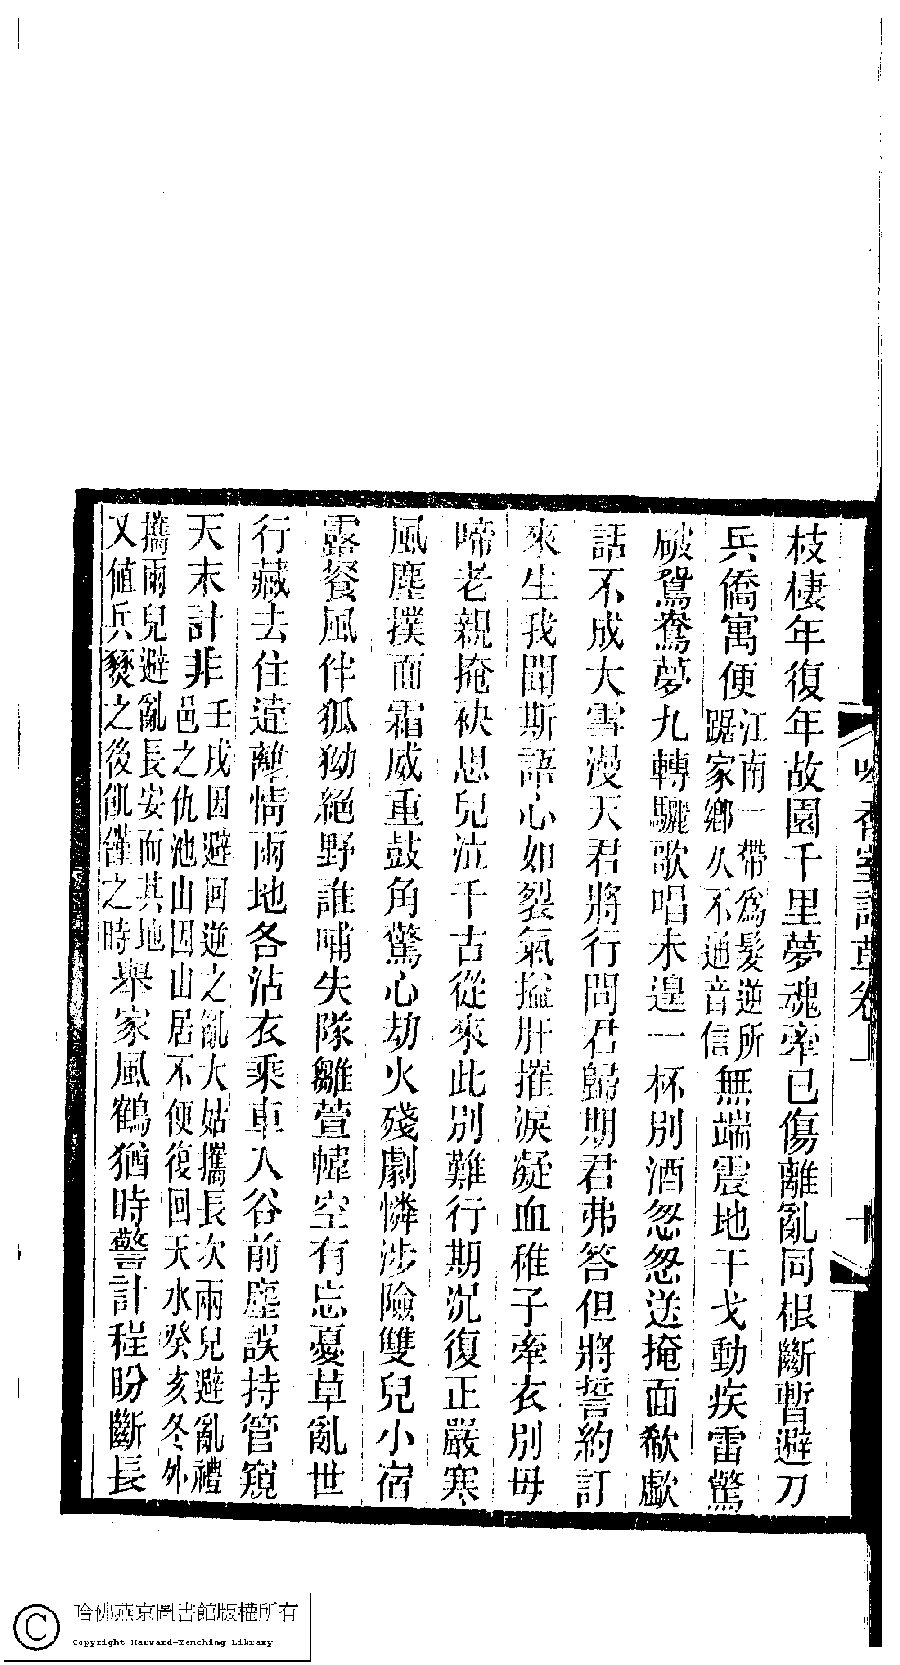 枝棲年復年故園千里夢魂牽已傷離亂同根斷暫避刀
兵僑寓便江南一帶為髮逆所踞家鄉久不通音信無端震地干戈動疾雷驚
破鴛鴦夢九轉驪歌唱未遑一杯別酒怱怱送掩面欷歔
話不成大雪漫天君將行問君歸期君弗答但將誓約訂
來生我聞斯語心如裂氣搤肝摧淚凝血稚子牽衣別母
啼老親掩袂思兒泣千古從來此別難行期況復正嚴寒
風塵撲面霜威重鼓角驚心劫火殘劇憐涉險雙兒小宿
露餐風伴狐狖絕野誰哺失隊雛萱幃空有忘憂草亂世
行藏去住違離情兩地各沾衣乘車入谷前塵誤持管窺
天末計非壬戌因避回逆之亂大姑攜長次兩兒避亂禮邑之仇池山因山居不便復回天水癸亥冬外
攜兩兒避亂長安而其地又值兵燹之後飢饉之時舉家風鶴猶時警計程盼斷長
香室詩草卷上
十
哈佛燕京圖書館版權所有
Copyright Harvard-Yenching Library